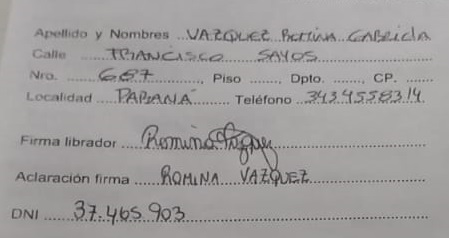 Apellido y Nombres ..VAZQUEZ Romina GABRiela
Calle ...... FRANCISCO SAYOS
Nro. .... 687 ........, Piso ......., Dpto. ......., CP. ......
Localidad .... PARANA ......... Teléfono ..3434558314
Firma librador .... Romina Vazquez
Aclaración firma ..... ROMINA VAZQUEZ
DNI ..... 37.465.903